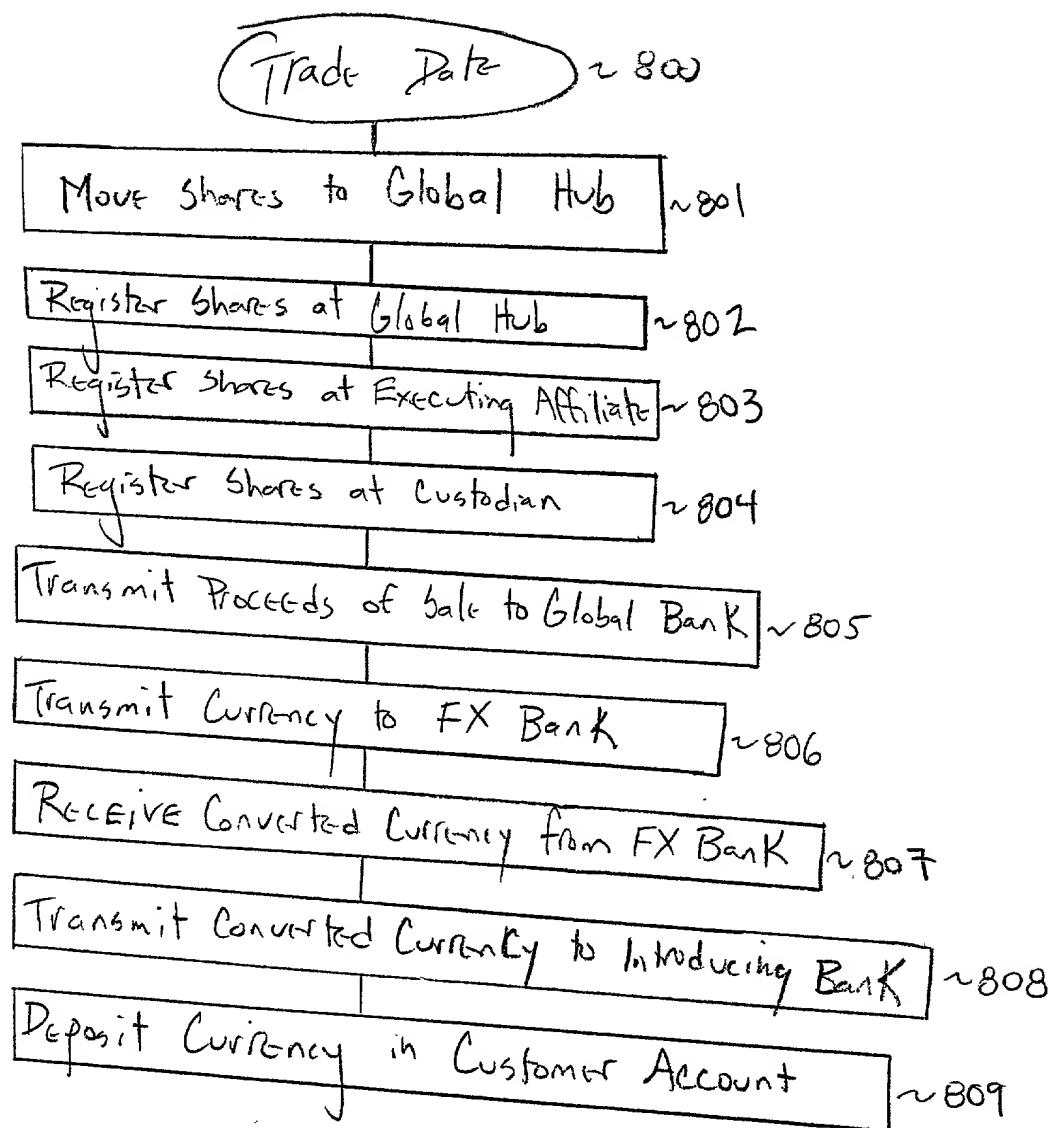 Trade Date ~ 800
Move Shares to Global Hub ~801
Register Shares at Global Hub ~802
Register Shares at Executing Affiliate ~803
Register Shares at Custodian ~804
Transmit Proceeds of Sale to Global Bank ~805
Transmit Currency to FX Bank ~806
Receive Converted Currency from FX Bank ~807
Transmit Converted Currency to Introducing Bank ~808
Deposit Currency in Customer Account ~809